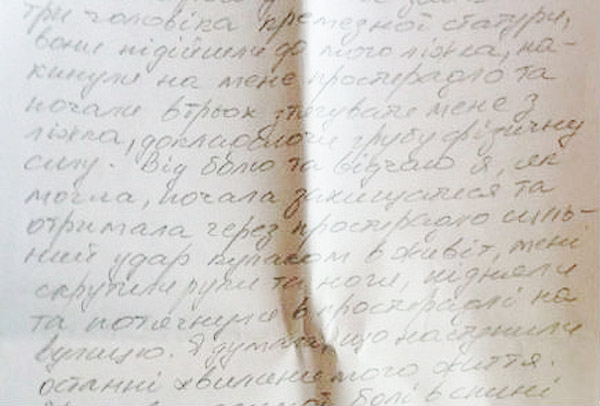 три чоловіка кремезної статури,
вони підійшли до мого ліжка, на-
кинули на мене простирадло та
почали втрьох стягувати мене з
ліжка, докладаючи грубу фізичну
силу. Від болю та відчаю я, як
могла, почала захищатися та
отримала через простирадло силь-
ний удар кулаком в живіт, мені
скрутили руки та ноги, підняли
та потягнули в простирадлі на
вулицю. Я думала, що наступили
останні хвилини мого життя.
болі в спині